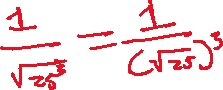 1/√25³ = 1/(√25)³